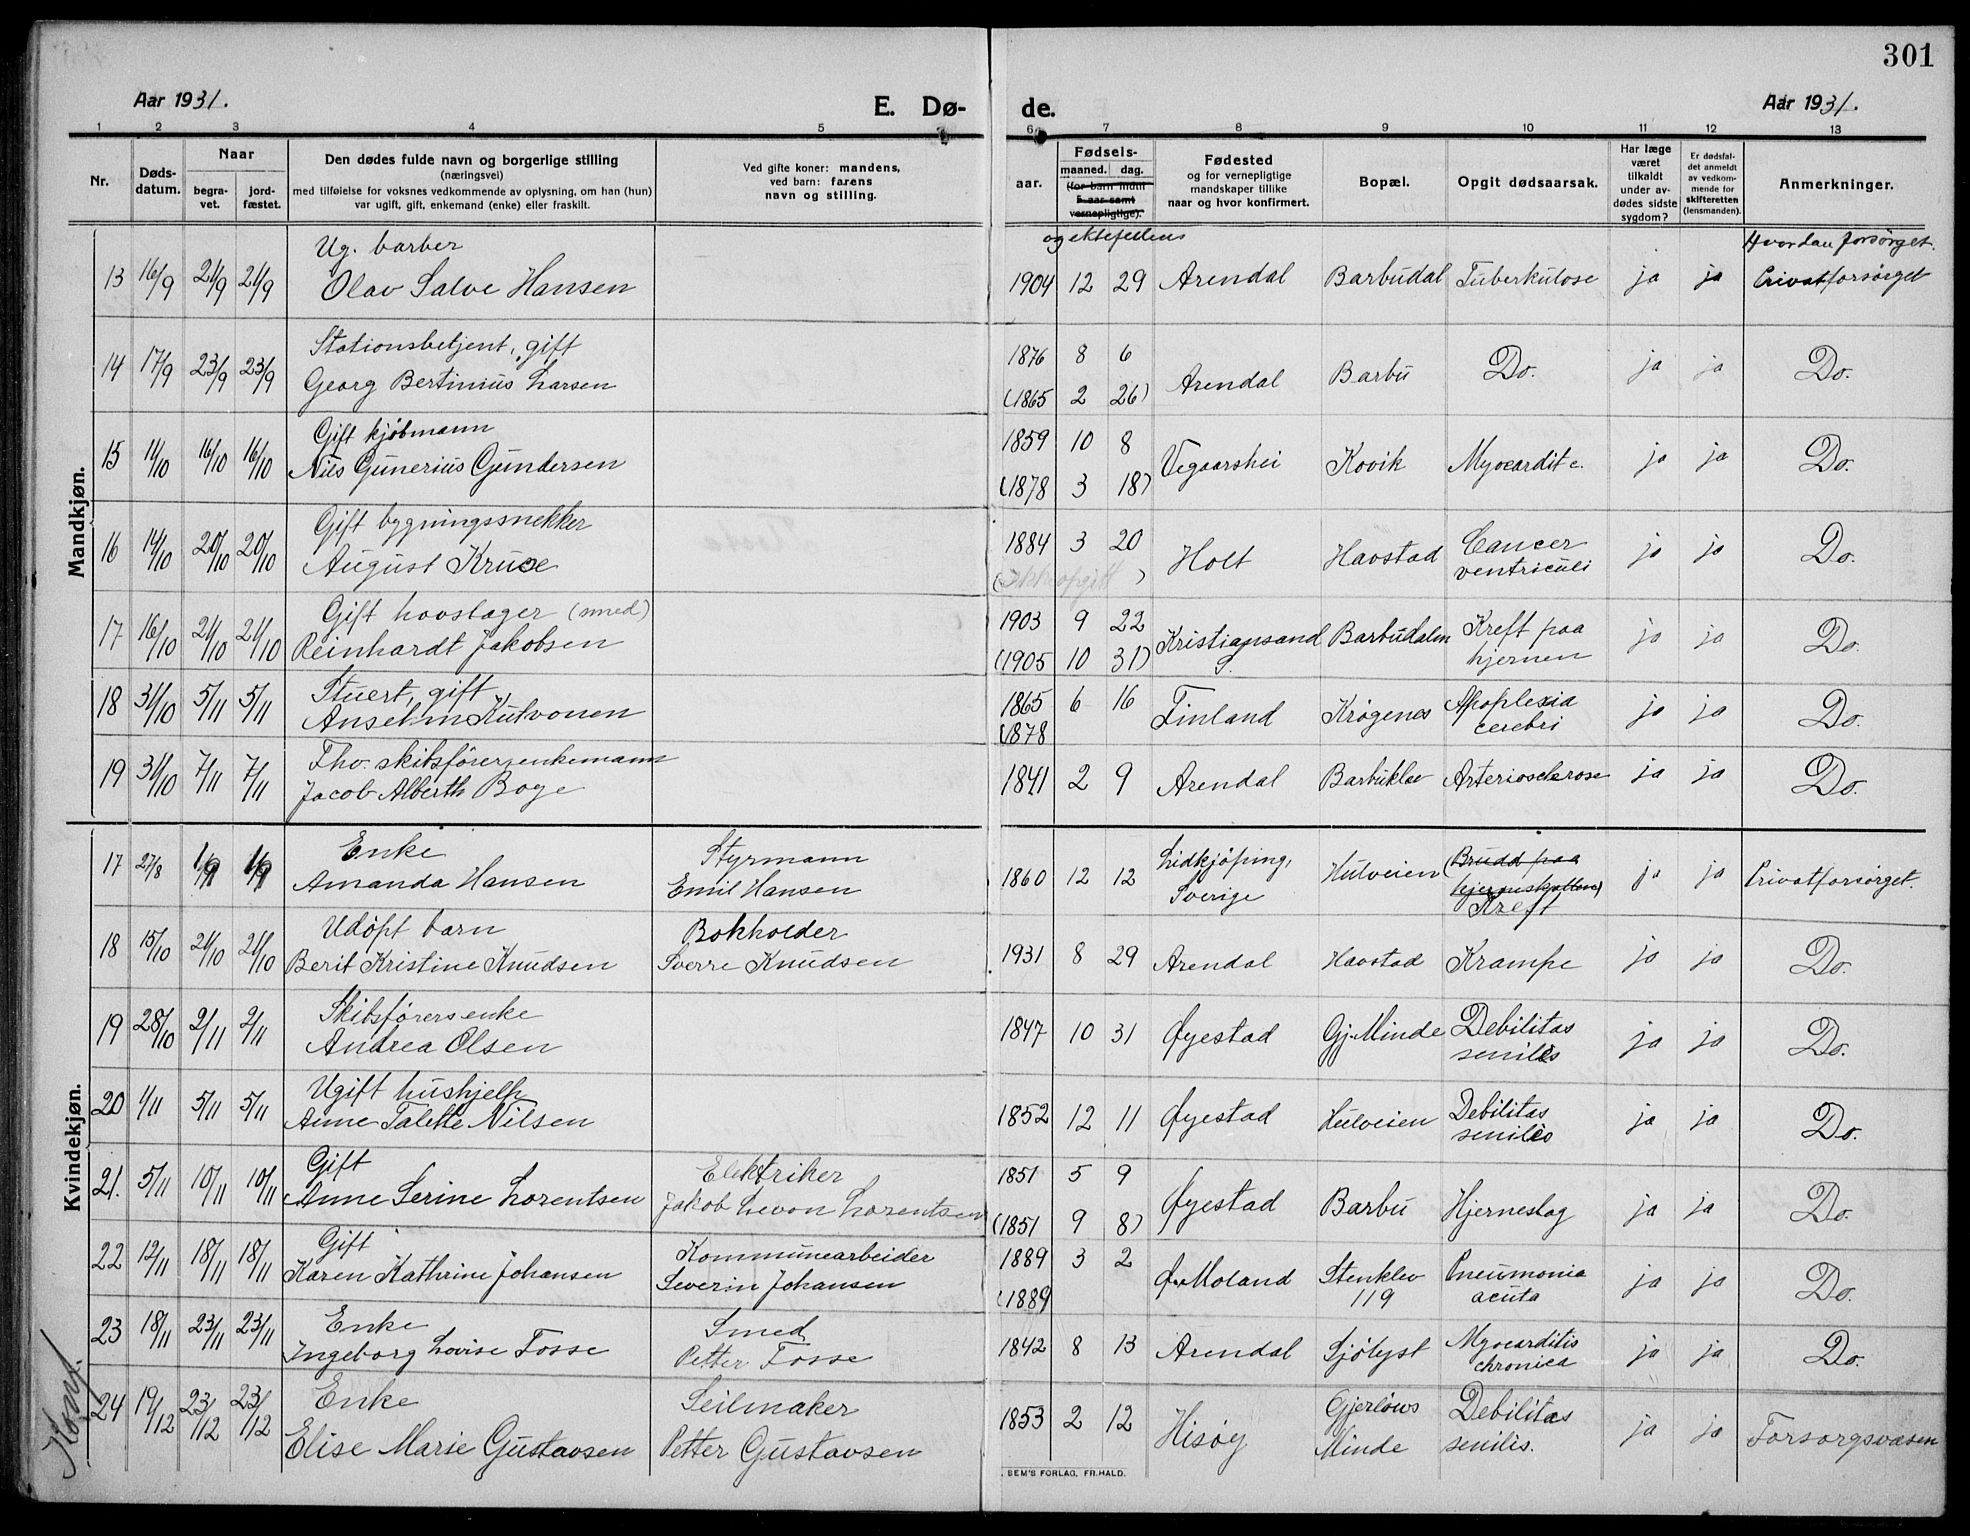 301
Aar 1931.
E. Dø-
de.
Aar 1931.
1 2 3 4 5 6 7 8 9 10 11 12 13
Nr.
Døds-
datum.
Naar
begra-
vet.
jord-
fæstet.
Den dødes fulde navn og borgerlige stilling
(næringsvei)
med tilføielse for voksnes vedkommende av oplysning, om han (hun)
var ugift, gift, enkemand (enke) eller fraskilt.
Ved gifte koner: mandens,
ved barn: farens
navn og stilling.
Fødsels-
aar.
maaned.
dag.
(for barn indtil
5 aar samt
vernepligtige).
og ektefellens
Fødested
og for vernepligtige
mandskaper tillike
naar og hvor konfirmert.
Bopæl.
Opgit dødsaarsak.
Har læge
været
tilkaldt
under av-
dødes sidste
sygdom?
Er dødsfal-
det anmeldt
av vedkom-
mende for
skifteretten
(lensmanden).
Anmerkninger.
Hvordan forsørget.
Mandkjøn.
Ug. barber
13 16/9 21/9 21/9 Olav Salve Hansen 1904 12 29 Arendal Barbudal Tuberkulose ja ja Privatforsørget
Stationsbetjent, gift 1876 8 6
14 17/9 23/9 23/9 Georg Bertinius Larsen (1865 2 26) Arendal Barbu Do. ja ja Do.
Gift kjøbmann 1859 10 8
15 11/10 16/10 16/10 Nils Gunerius Gundersen (1878 3 18) Vegaarshei Kovik Myocardit c. ja ja Do.
Gift bygningssnekker 1884 3 20 Cancer
16 14/10 20/10 20/10 August Kruse (Ikke opgitt) Holt Havstad ventriculi ja ja Do.
Gift hovslager (smed) 1903 9 22 Kreft paa
17 16/10 21/10 21/10 Reinhardt Jakobsen (1905 10 31) Kristiansand S. Barbudalen hjernen ja ja Do.
Stuert, gift 1865 6 16 Apoplexia
18 31/10 5/11 5/11 Anselm Kutvonen (1878 Finland Krøgenes cerebri ja ja Do.
Fhv. skibsfører, enkemann
19 31/10 7/11 7/11 Jacob Alberth Boge 1841 2 9 Arendal Barbuklev Arteriosclerose ja ja Do.
Kvindekjøn.
Enke Styrmann Lidkjøping, (Brudd paa
17 27/8 1/9 1/9 Amanda Hansen Emil Hansen 1860 12 12 Sverige Hulveien hjerneskallen) Kreft ja ja Privatforsørget.
Udøpt barn Bokholder
18 15/10 21/10 21/10 Berit Kristine Knudsen Sverre Knudsen 1931 8 29 Arendal Havstad Krampe ja ja Do.
Skibsførersenke Debilitas
19 28/10 2/11 2/11 Andrea Olsen 1847 10 31 Øyestad Gj. Minde senilis ja ja Do.
Ugift hushjelp Debilitas
20 1/11 5/11 5/11 Anne Talette Nilsen 1852 12 11 Øyestad Hulveien senilis ja ja Do.
Gift Elektriker 1851 5 9
21. 5/11 10/11 10/11 Anne Serine Lorentsen Jakob Levon Lorentsen (1851 9 8) Øyestad Barbu Hjerneslag ja ja Do.
Gift Kommunearbeider 1889 3 2 Stenklev Pneumonia
22 12/11 18/11 18/11 Karen Kathrine Johansen Severin Johansen (1889 Ø. Moland 119 acuta ja ja Do.
Enke Smed Myocarditis
23 18/11 23/11 23/11 Ingeborg Lovise Fosse Petter Fosse 1842 8 13 Arendal Sjølyst chronica ja ja Do.
Enke Seilmaker Gjerløws Debilitas
24 19/12 23/12 23/12 Elise Marie Gustavsen Petter Gustavsen 1853 2 12 Hisøy Minde senilis. ja ja Forsorgsvæsen
Konf.
SEM'S FORLAG, FR.HALD.